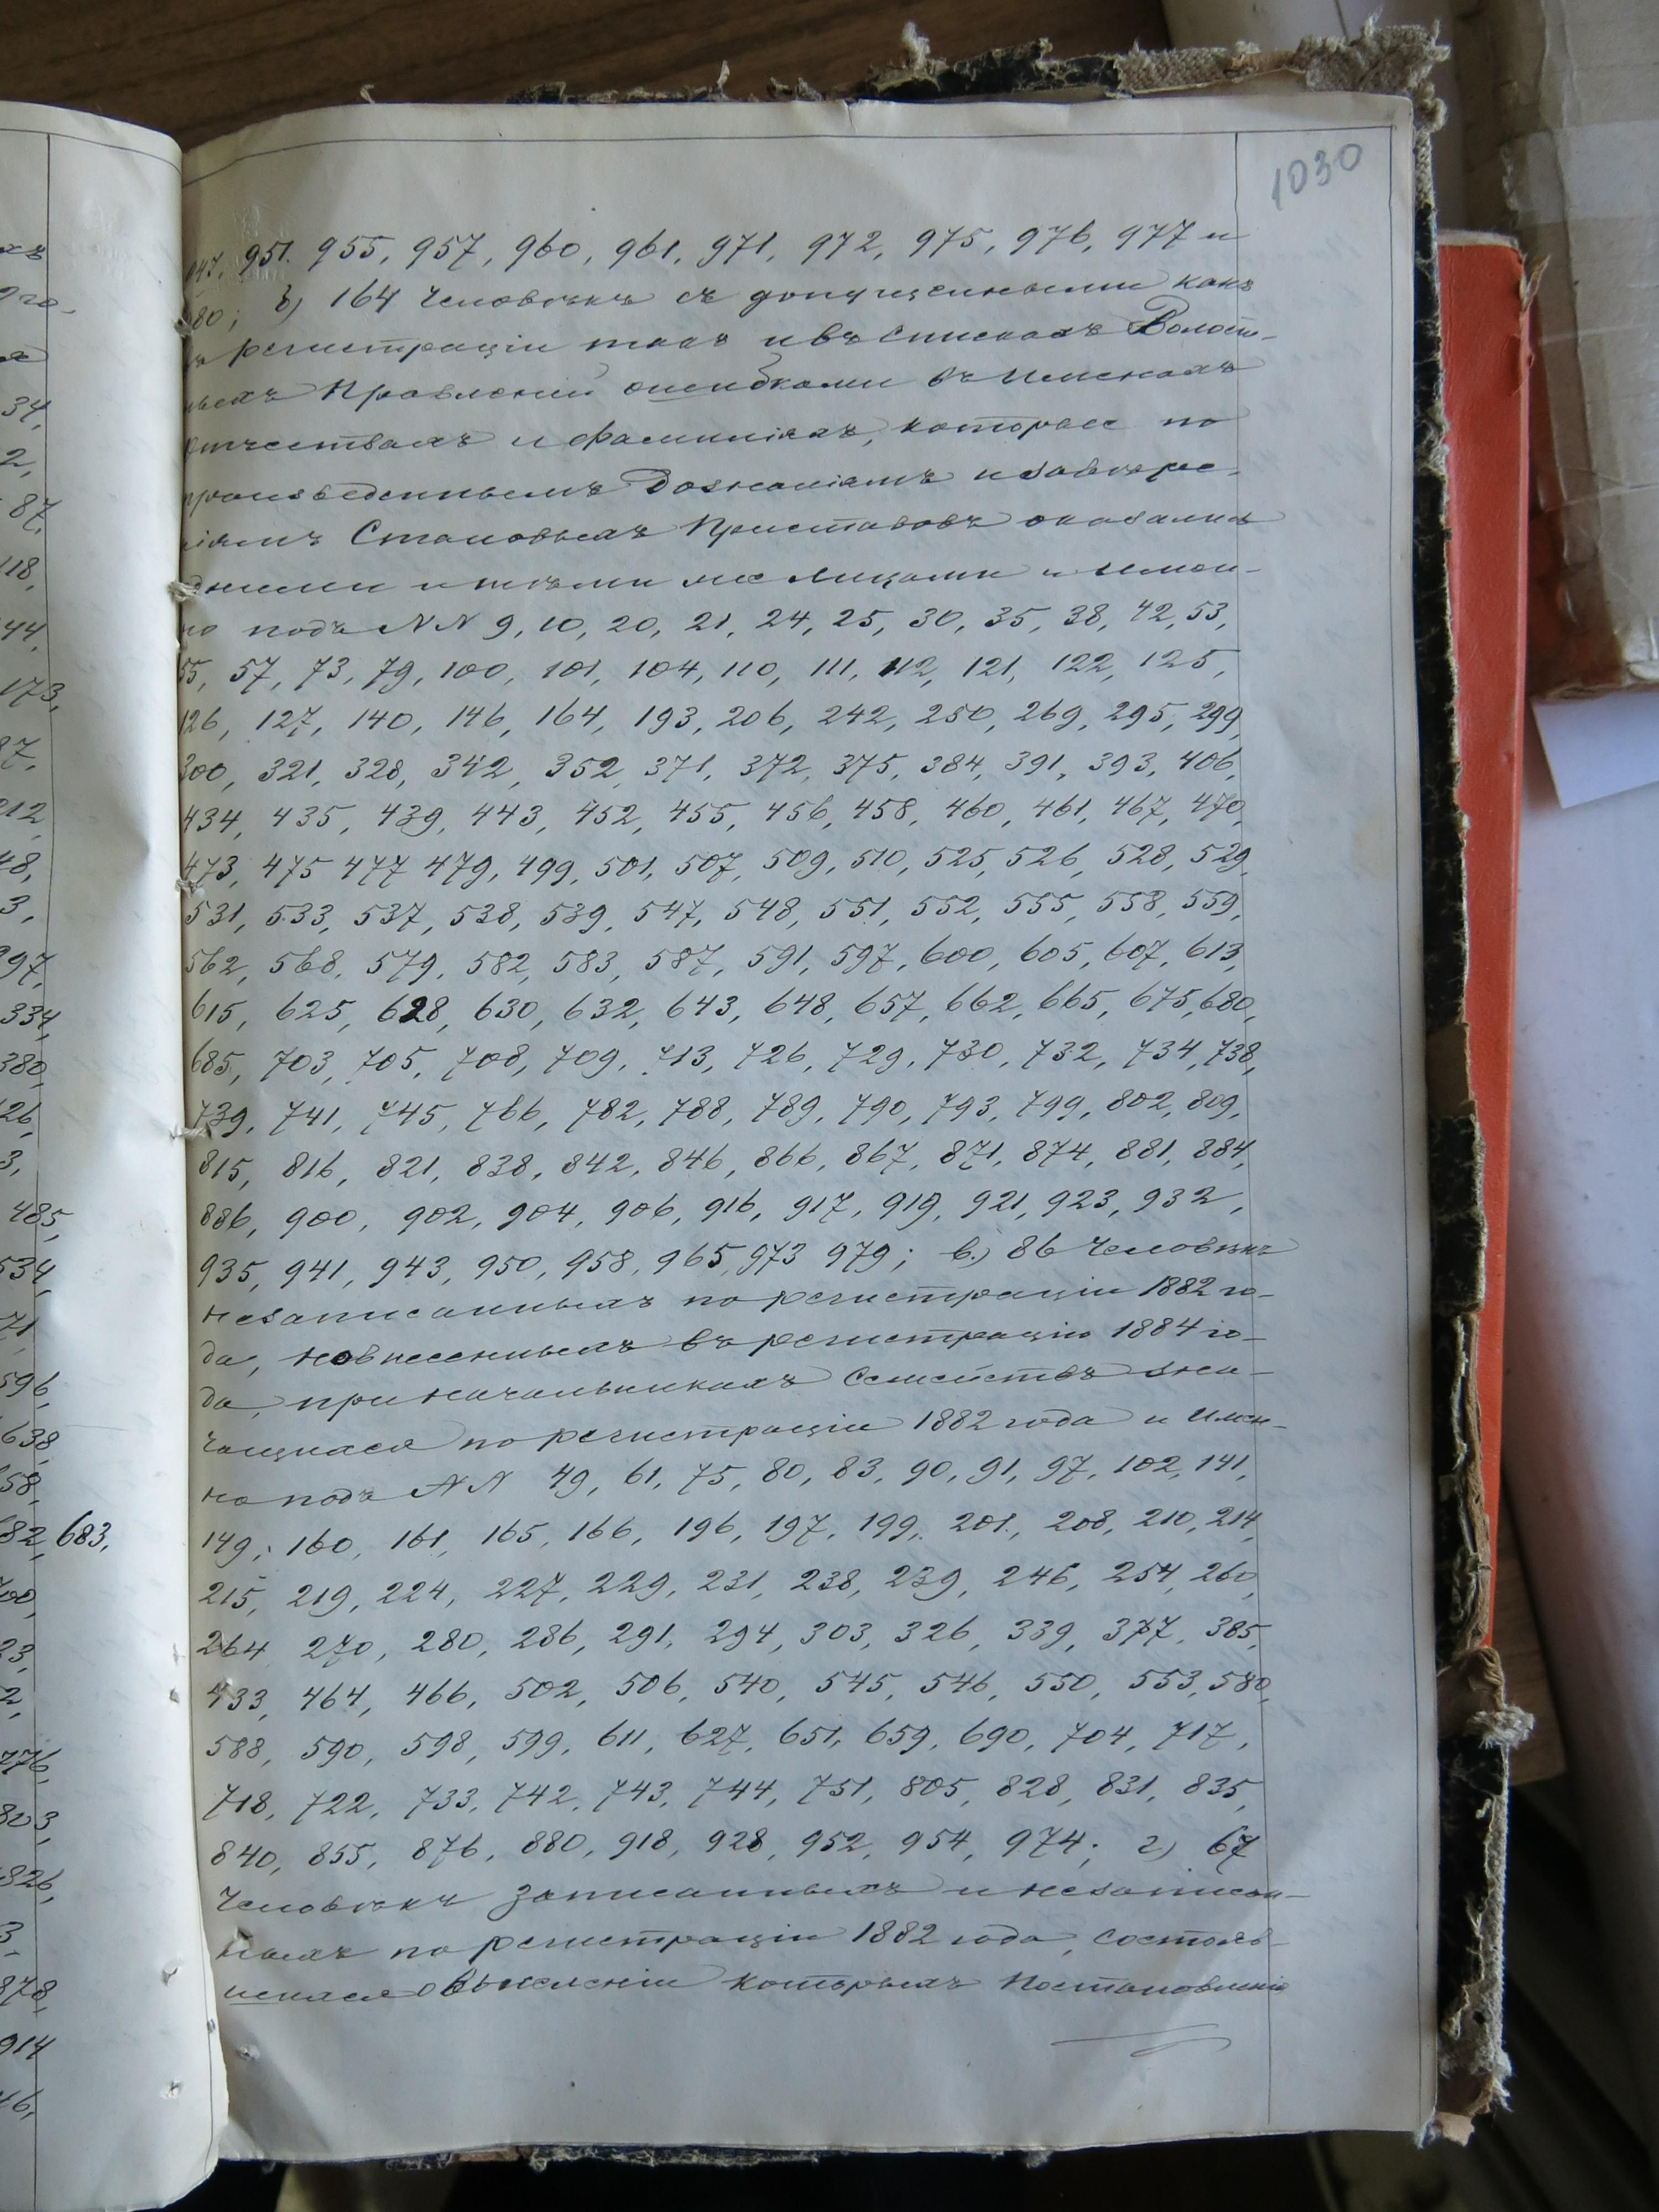 1030
947, 951. 955, 957, 960, 961, 971, 972, 975, 976, 977 и
980; б) 164 человѣкъ съ допущенными какъ
въ регистраціи такъ и въ спискахъ Волост-
ныхъ Правленій ошибками въ именахъ
отчествахъ и фамиліяхъ, которые по
произведеннымъ дознаніямъ и завѣре-
ніямъ Становыхъ Приставовъ оказались
одними и тѣми же лицами и имен-
но подъ NN 9, 10, 20, 21, 24, 25, 30, 35, 38, 42, 53,
55, 57, 73, 79, 100, 101, 104, 110, 111, 112, 121, 122, 125,
126, 127, 140, 146, 164, 193, 206, 242, 250, 269, 295, 299,
300, 321, 328, 342, 352, 371, 372, 375, 384, 391, 393, 406,
434, 435, 439, 443, 452, 455, 456, 458, 460, 461, 467, 470,
473, 475 477 479, 499, 501, 507, 509, 510, 525, 526, 528, 529,
531, 533, 537, 538, 539, 547, 548, 551, 552, 555, 558, 559,
562, 568, 579, 582, 583, 587, 591, 597, 600, 605, 607, 613,
615, 625, 628, 630, 632, 643, 648, 657, 662, 665, 675, 680,
685, 703, 705, 708, 709, 713, 726, 729, 730, 732, 734, 738,
739, 741, 745, 766, 782, 788, 789, 790, 793, 799, 802, 809,
815, 816, 821, 838, 842, 846, 866, 867, 871, 874, 881, 884,
886, 900, 902, 904, 906, 916, 917, 919, 921, 923, 932,
935, 941, 943, 950, 958, 965, 973 979; в.) 86 человѣкъ
незаписанныхъ по регистраціи 1882 го-
да, новнесенныхъ въ регистрацію 1884 го-
да, при начальникахъ семействъ зна-
чащихся по регистраціи 1882 года и имен-
но подъ NN 49, 61, 75, 80, 83, 90, 91, 97, 102, 141,
149, 160, 161, 165, 166, 196, 197, 199, 201, 208, 210, 214,
215, 219, 224, 227, 229, 231, 238, 239, 246, 254, 260,
264, 270, 280, 286, 291, 294, 303, 326, 339, 377, 385,
433, 464, 466, 502, 506, 540, 545, 546, 550, 553, 580,
588, 590, 598, 599, 611, 627, 651, 659, 690, 704, 717,
718, 722, 733, 742, 743, 744, 751, 805, 828, 831, 835,
840, 855, 876, 880, 918, 928, 952, 954, 974; г) 67
человѣкъ записанныхъ и незаписан-
ныхъ по регистраціи 1882 года, состояв-
шихся о выселеніи которыхъ постановленія